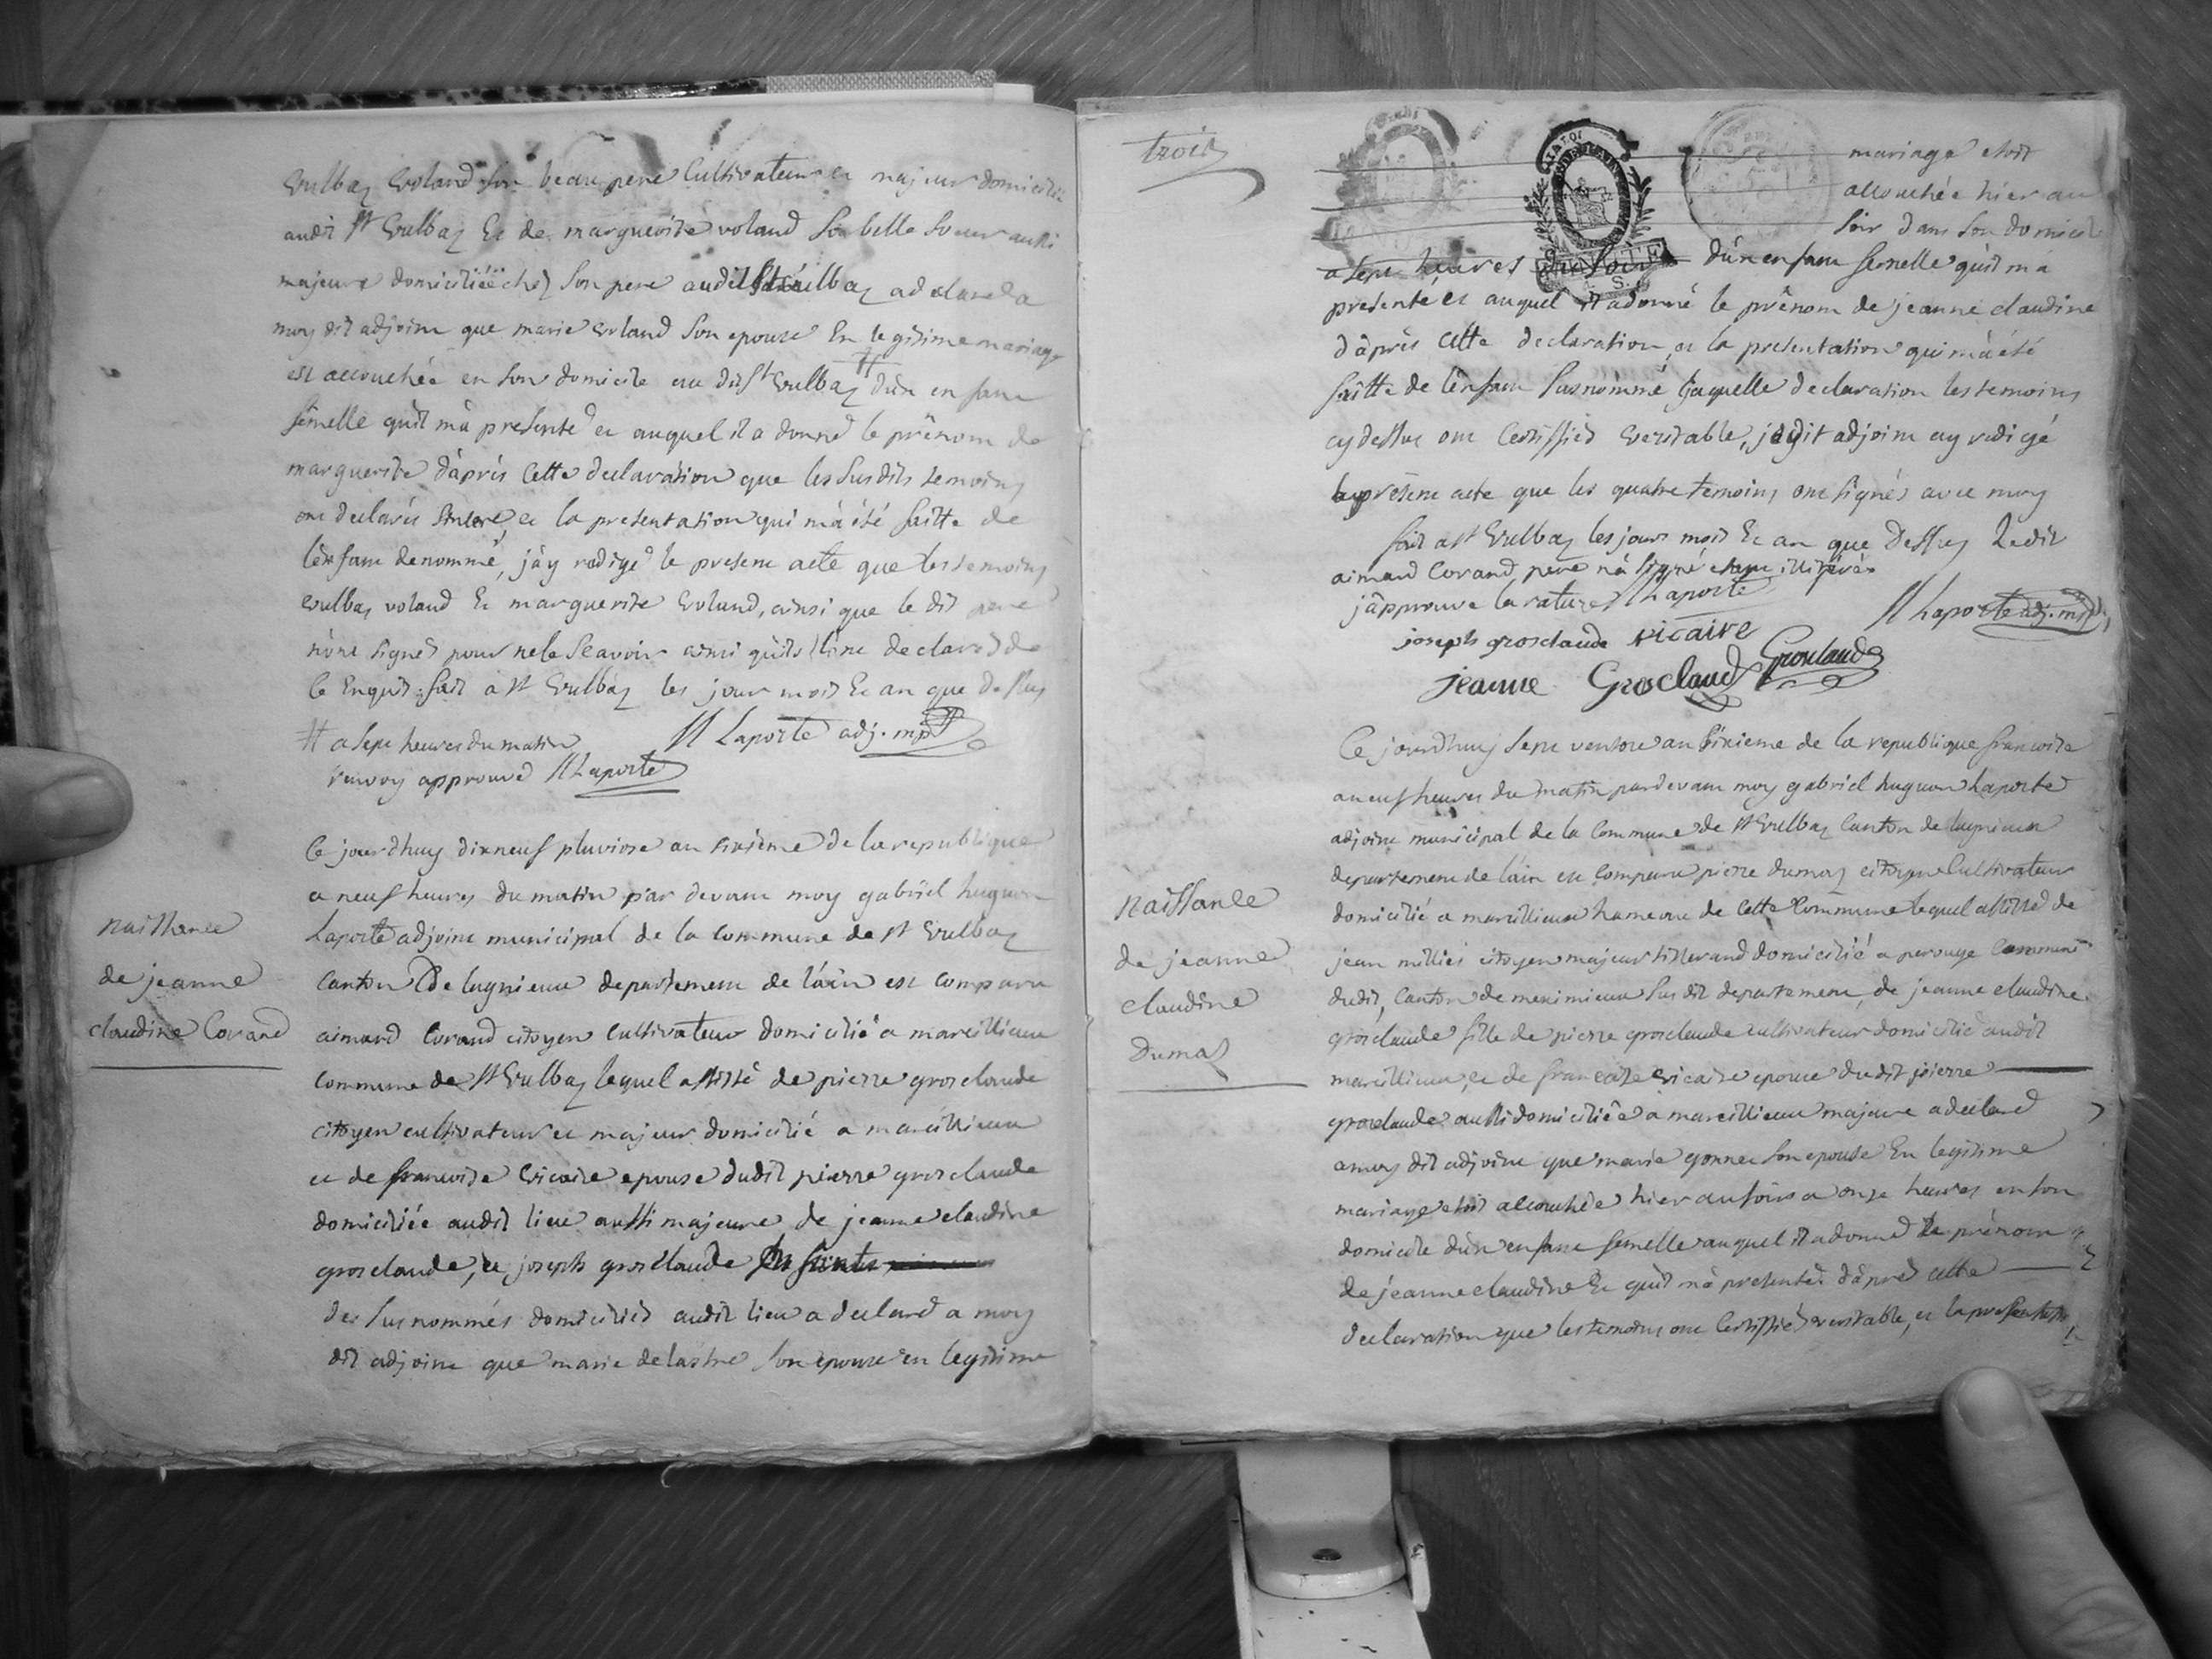 vulbaz voland son beau pere Cultivateur et majeur domicilié
audit St Vulbaz Et de marguerite voland Sa belle Soeur aussi
majeure domiciliée chez Son pere audit St vulbaz a déclaré a
moy dit adjoint que marie voland Son epouse En legitime mariage
est accouchée en Son domicile au dit St vulbaz # d'un enfant
femelle qu'il m'a presenté et auquel il a donné le prénom de
marguerite d'après Cette declaration que les Susdits temoins
ont declarés Sincere, et la presentation qui m'a été faitte de
l'enfant denommé, j'ay redigé le present acte que les temoins
vulbaz voland Et marguerite Voland, ainsi que le dit pere
n'ont signés pour ne le Scavoir ainsi qu'ils l'ont declarés de
Ce Enquis. fait a St Vulbaz les jour mois Et an que dessus
# a Sept heures du matin H Laporte adj. mpal
renvoy approuvé H Laporte
naissance
de jeanne
claudine Corand
Ce jourdhuy dixneuf pluviose an sixieme de la republique
a neuf heures du matin par devant moy gabriel hugon
Laporte adjoint municipal de la Commune de St Vulbaz
Canton De lagnieux departement de l'ain est comparu
aimard Corand citoyen cultivateur domicilié a marcillieux
Commune de St Vulbaz lequel assisté de pierre grosclaude
citoyen cultivateur et majeur domicilié a marcillieux
et de francoise vicaire epouse dudit pierre grosclaude
domiciliée audit lieu aussi majeure de jeanne claudine
grosclaude, et joseph grosclaude
des Susnommés domiciliés audit lieu a declaré a moy
dit adjoint que marie delastre Son epouse en legitime
trois
mariage etoit
accouchée hier au
Soir dans Son domicile
a sept heures du Soir d'un enfant femelle qu'il m'a
presenté et auquel il a donné le prénom de jeanne claudine
d'après Cette declaration, et la presentation qui m'a été
faitte de l'enfant Susnommé, laquelle declaration les temoins
cy dessus ont Certiffiés veritable, j'ay dit adjoint ay redigé
le present acte que les quatre temoins ont signés avec moy
fait a St Vulbaz les jours mois Et an que Dessus Ledit
aimard Corand pere n'a signé etant illiteré
j'approuve la rature H Laporte
H Laporte adj. mpal
joseph grosclaude vicaire
jeanne Grosclaude Grosclaude
naissance
de jeanne
claudine
Dumas
Ce jourdhuy Sept ventose an Sixieme de la republique francoise
a neuf heures du matin pardevant moy gabriel hugon Laporte
adjoint municipal de la Commune de St Vulbaz Canton de lagnieux
departement de l'ain est Comparu pierre dumas citoyen Cultivateur
domicilié a marcillieux hameau de Cette Commune lequel assisté de
jean milliet citoyen majeur tisserand domicilié a perouge Commune
dudit, Canton de meximieux Sus dit departement, de jeanne claudine
grosclaude fille de pierre grosclaude cultivateur domicilié audit
marcillieux, et de francoise vicaire epouse du dit pierre
grosclaude aussi domiciliée a marcillieux majeure a declaré
a moy dit adjoint que marie gonnet Son epouse En legitime
mariage etoit accouchée hier au soir a onze heures en Son
domicile d'un enfant femelle auquel il a donné le prénom
de jeanne claudine Et qu'il m'a presenté d'après cette
declaration que les temoins ont Certiffiés veritable, et la presentation